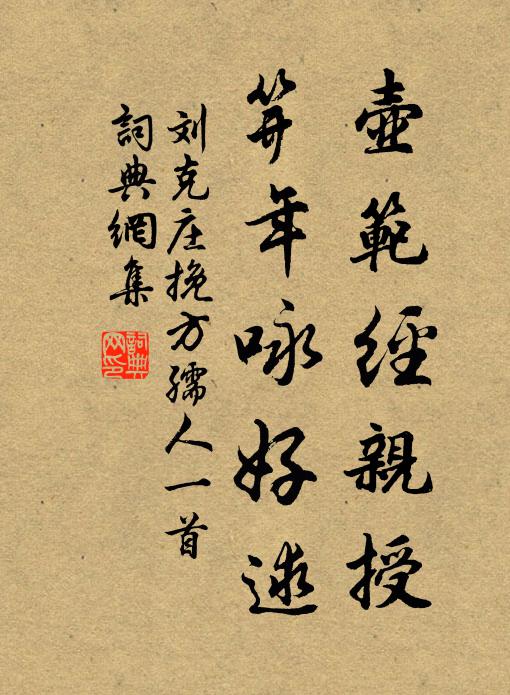 壺範經親授
笄年咏好逑
刘克庄挽方孺人一首
詞典網集
詞典
网印